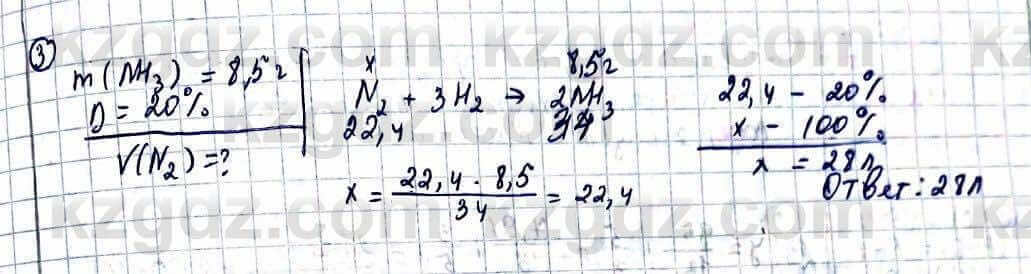 ③
m(NH₃) = 8,5г
D = 20%
V(N₂) = ?
x 8,5г
N₂ + 3H₂ → 2NH₃
22,4 34
x = 22,4 · 8,5 / 34 = 22,4
22,4 – 20%
x – 100%
x = 28л
Ответ: 28л
kzgdz.com kzgdz.com kzgdz.com
kzgdz.com kzgdz.com kzgdz.com